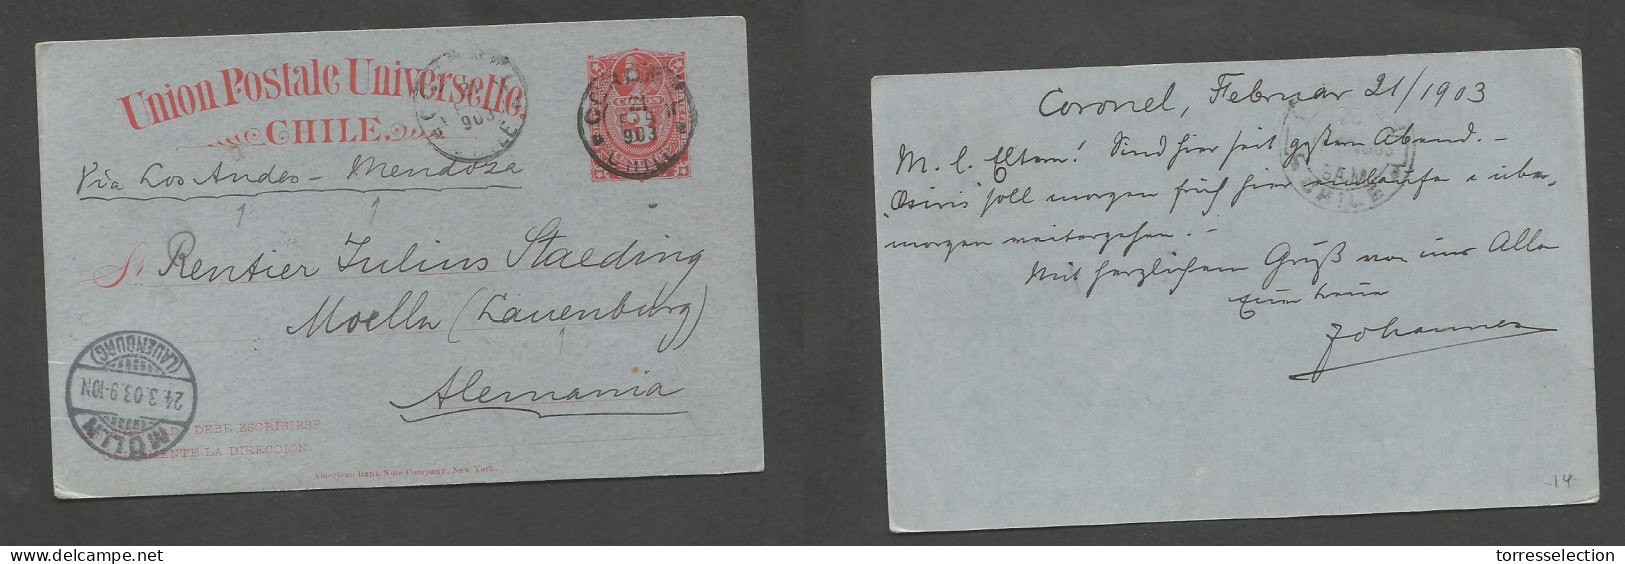 Union Postale Universelle.
CHILE.
Via Los Andes - Mendoza
Sr. Rentier Julius Staeding
Moelln (Lauenburg)
Alemania
DEBE ESCRIBIRSE
LA DIRECCION.
American Bank Note Company, New York.
MÖLLN
24.3.03.9-10N
(LAUENBURG)
903
CHILE
21
903
CHILE
Coronel, Februar 21/1903
M. l. Eltern! Sind hier seit gestern Abend. -
"Osiris" soll morgen früh hier einlaufen u. über-
morgen weitergehen. -
Mit herzlichem Gruß von uns Allen
Euer treuer
Johannes
8 A.M.
CHILE
-14
torresselection